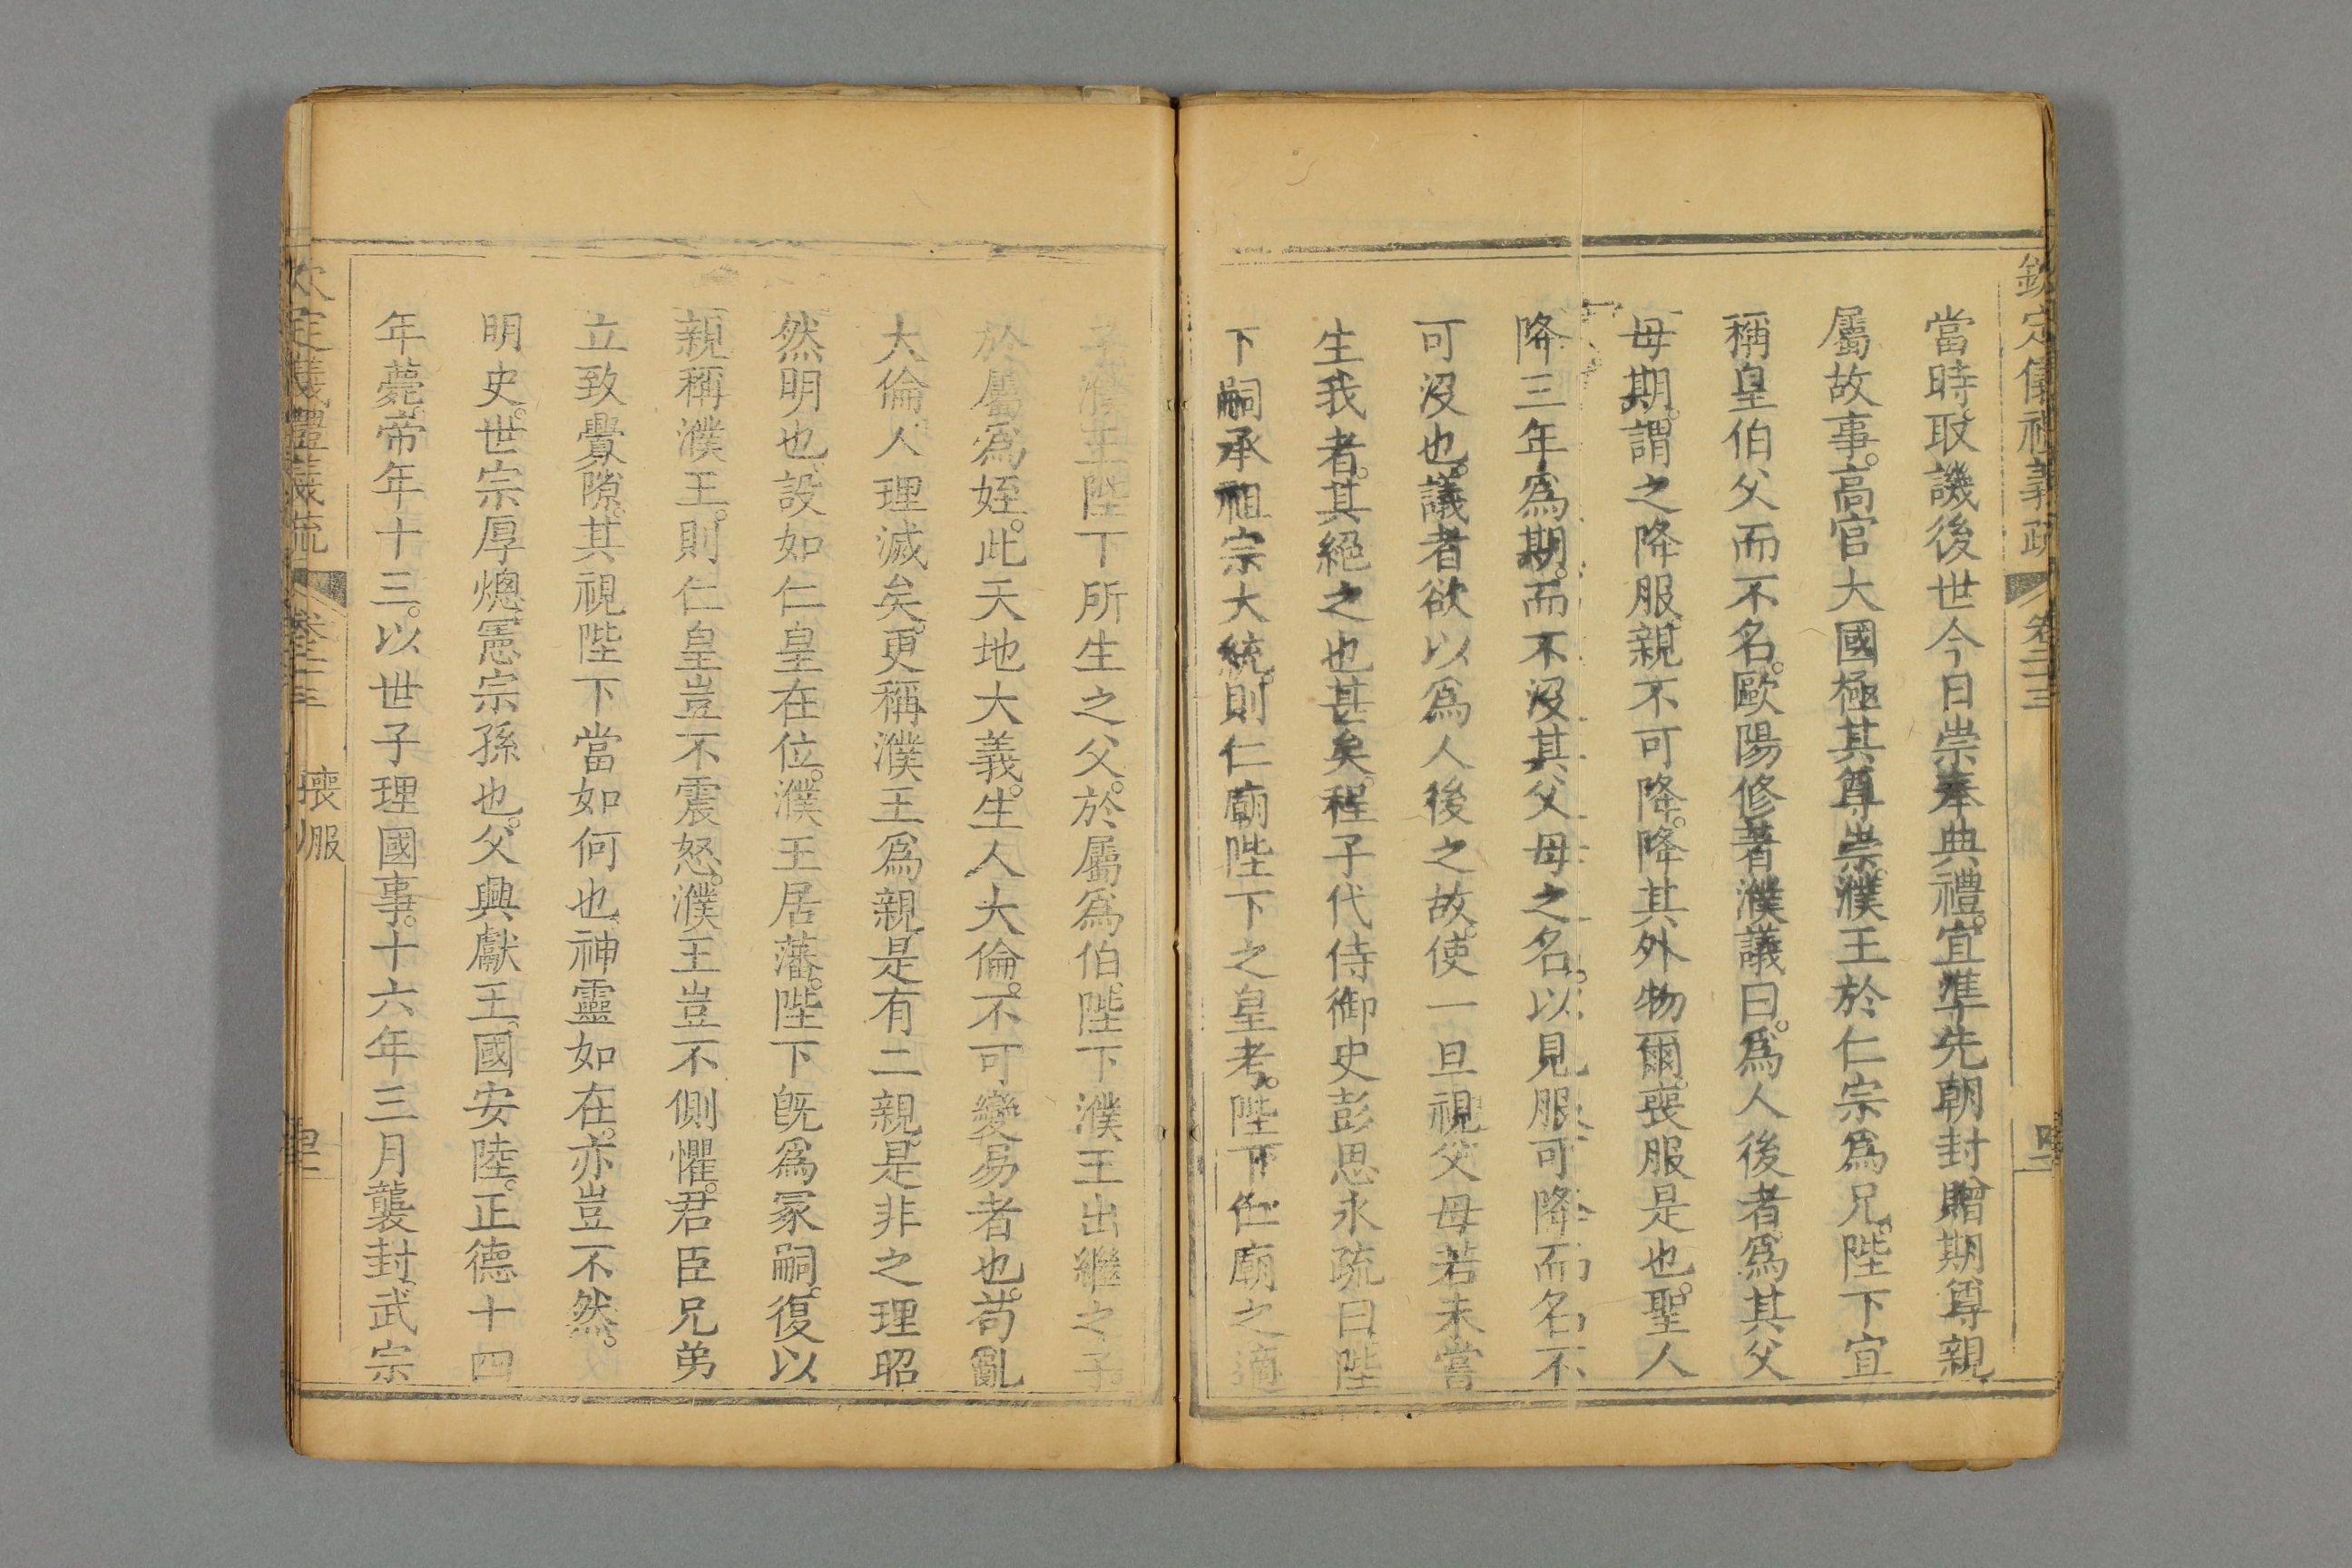 欽定儀禮義疏 卷二十三
當時取譏後世今日崇奉典禮。宜準先朝封贈期尊親
屬故事。高官大國極其尊崇。濮王於仁宗爲兄。陛下宜
稱皇伯父而不名。歐陽修著濮議曰。爲人後者爲其父
母期。謂之降服親不可降。降其外物爾。喪服是也。聖人
降三年爲期。而不沒其父母之名。以見服可降而名不
可沒也。議者欲以爲人後之故。使一旦視父母若未嘗
生我者。其絕之也甚矣。程子代侍御史彭思永疏曰陛
下嗣承祖宗大統。則仁廟陛下之皇考。陛下仁廟之適
子濮王陛下所生之父。於屬爲伯。陛下濮王出繼之子
於屬爲姪。此天地大義。生人大倫。不可變易者也。苟亂
大倫。人理滅矣。更稱濮王爲親。是有二親。是非之理昭
然明也。設如仁皇在位。濮王居藩。陛下旣爲冢嗣。復以
親稱濮王。則仁皇豈不震怒。濮王豈不側懼。君臣兄弟
立致釁隙。其視陛下當如何也。神靈如在。亦豈不然。
明史。世宗厚熜。憲宗孫也。父興獻王。國安陸。正德十四
年薨。帝年十三。以世子理國事。十六年三月襲封。武宗
欽定儀禮義疏 卷二十三 喪服